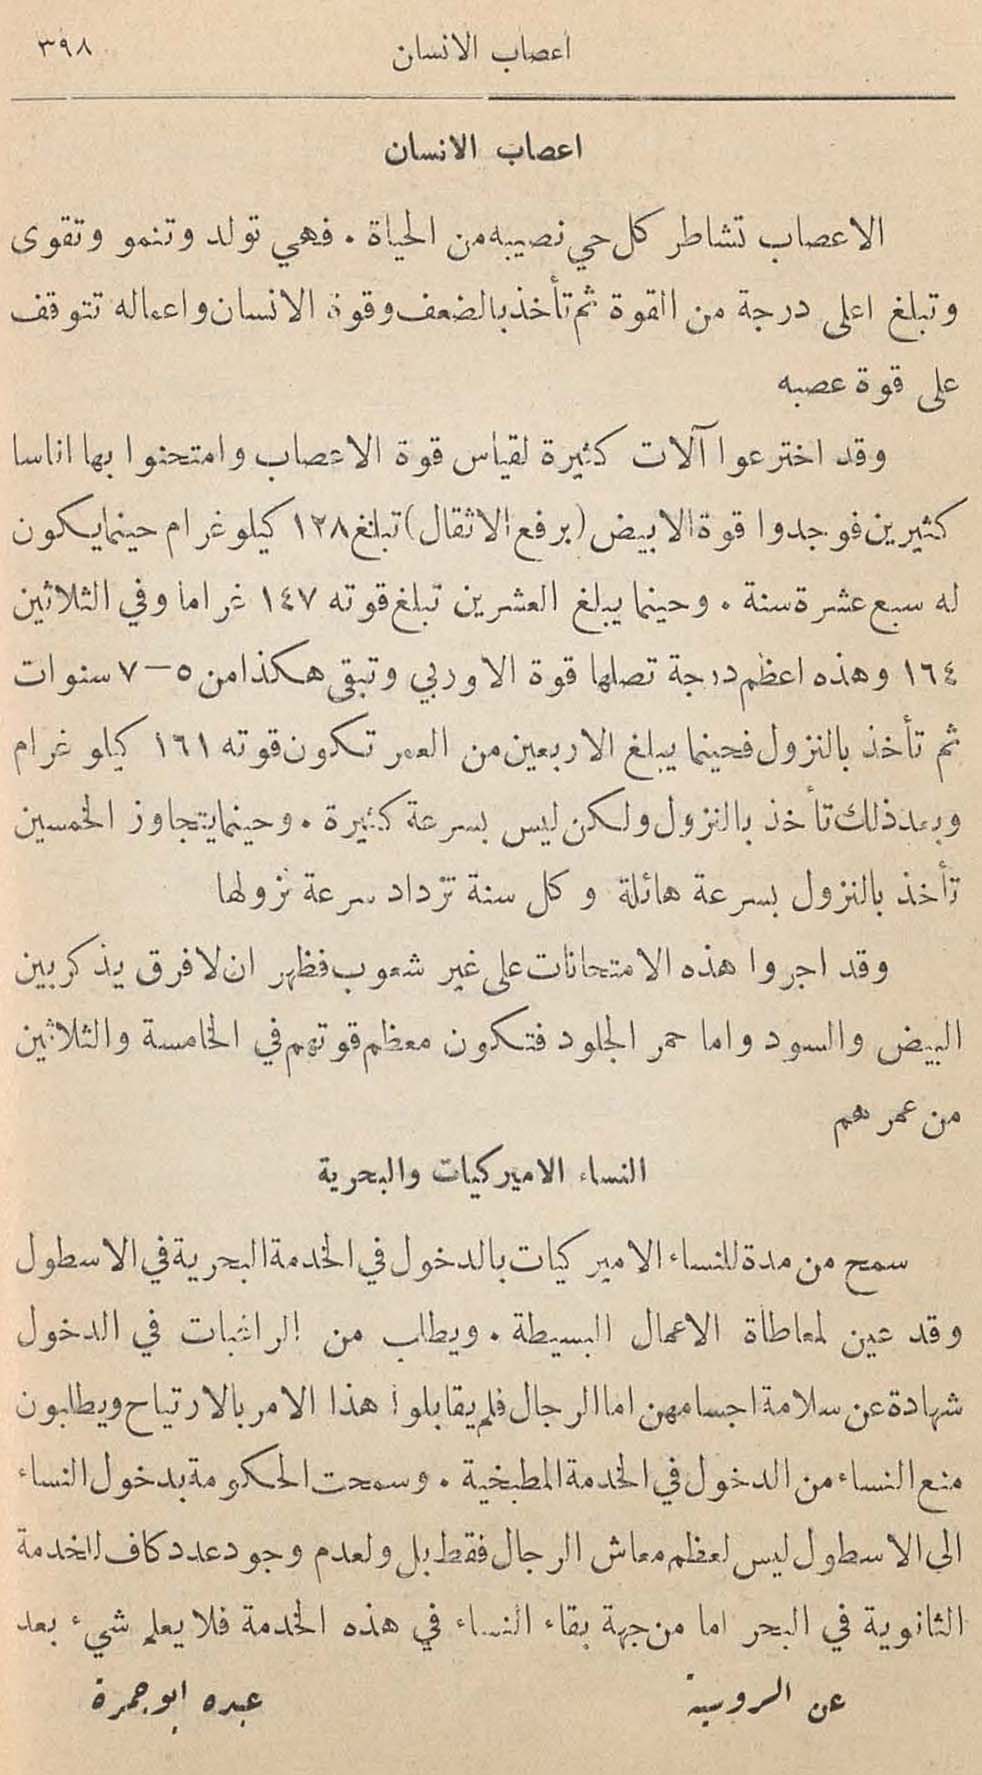 اعصاب الانسان ٣٩٨
اعصاب الانسان
الاعصاب تشاطر كل حي نصيبه من الحياة . فهي تولد وتنمو وتقوى
وتبلغ اعلى درجة من القوة ثم تأخذ بالضعف وقوة الانسان واعماله تتوقف
على قوة عصبه
وقد اخترعوا آلات كثيرة لقياس قوة الاعصاب وامتحنوا بها اناسا
كثيرين فوجدوا قوة الابيض (برفع الاثقال) تبلغ ١٢٨ كيلو غرام حينما يكون
له سبع عشرة سنة . وحينما يبلغ العشرين تبلغ قوته ١٤٧ غراما وفي الثلاثين
١٦٤ وهذه اعظم درجة تصلها قوة الاوربي وتبقى هكذا من ٥–٧ سنوات
ثم تأخذ بالنزول فحينما يبلغ الاربعين من العمر تكون قوته ١٦١ كيلو غرام
وبعد ذلك تأخذ بالنزول ولكن ليس بسرعة كثيرة . وحينما يتجاوز الخمسين
تأخذ بالنزول بسرعة هائلة وكل سنة تزداد سرعة نزولها
وقد اجروا هذه الامتحانات على غير شعوب فظهر ان لا فرق يذكر بين
البيض والسود واما حمر الجلود فتكون معظم قوتهم في الخامسة والثلاثين
من عمرهم
النساء الاميركيات والبحرية
سمح من مدة للنساء الاميركيات بالدخول في الخدمة البحرية في الاسطول
وقد عين لمعاطاة الاعمال البسيطة . ويطلب من الراغبات في الدخول
شهادة عن سلامة اجسامهن اما الرجال فلم يقابلوا هذا الامر بالارتياح ويطلبون
منع النساء من الدخول في الخدمة المطبخية . وسمحت الحكومة بدخول النساء
الى الاسطول ليس لعظم معاش الرجال فقط بل ولعدم وجود عدد كاف للخدمة
الثانوية في البحر اما من جهة بقاء النساء في هذه الخدمة فلا يعلم شيء بعد
عن الروسية عبده ابو جمرة